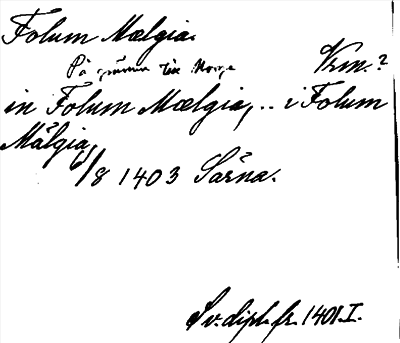 Folum Mælgia.
På gränsen till Norge Vrm.?
in Folum Mælgia, .. i Folum
Mälgia,
6/8 1403 Särna.
Sv. dipl. fr. 1401. I.